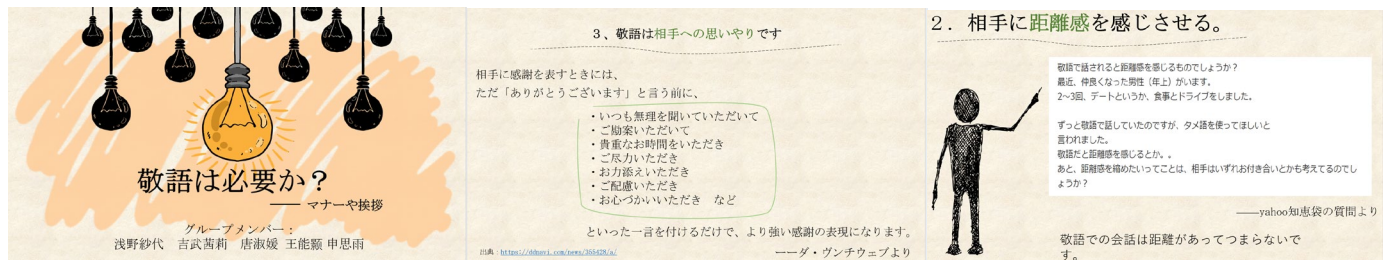 敬語は必要か？
―― マナーや挨拶
グループメンバー：
浅野紗代　吉武茜莉　唐淑媛 王能顥 申思雨
３、敬語は相手への思いやりです
相手に感謝を表すときには、
ただ「ありがとうございます」と言う前に、
・いつも無理を聞いていただいて
・ご勘案いただいて
・貴重なお時間をいただき
・ご尽力いただき
・お力添えいただき
・ご配慮いただき
・お心づかいいただき　など
といった一言を付けるだけで、より強い感謝の表現になります。
出典：https://ddnavi.com/news/355428/a/
ーーダ・ヴンチウェブより
２．相手に距離感を感じさせる。
敬語で話されると距離感を感じるものでしょうか？
最近、仲良くなった男性（年上）がいます。
2～3回、デートというか、食事とドライブをしました。
ずっと敬語で話していたのですが、タメ語を使ってほしいと
言われました。
敬語だと距離感を感じるとか。。
あと、距離感を縮めたいってことは、相手はいずれお付き合いとかも考えてるのでし
ょうか？
――yahoo知恵袋の質問より
敬語での会話は距離があってつまらないで
す。